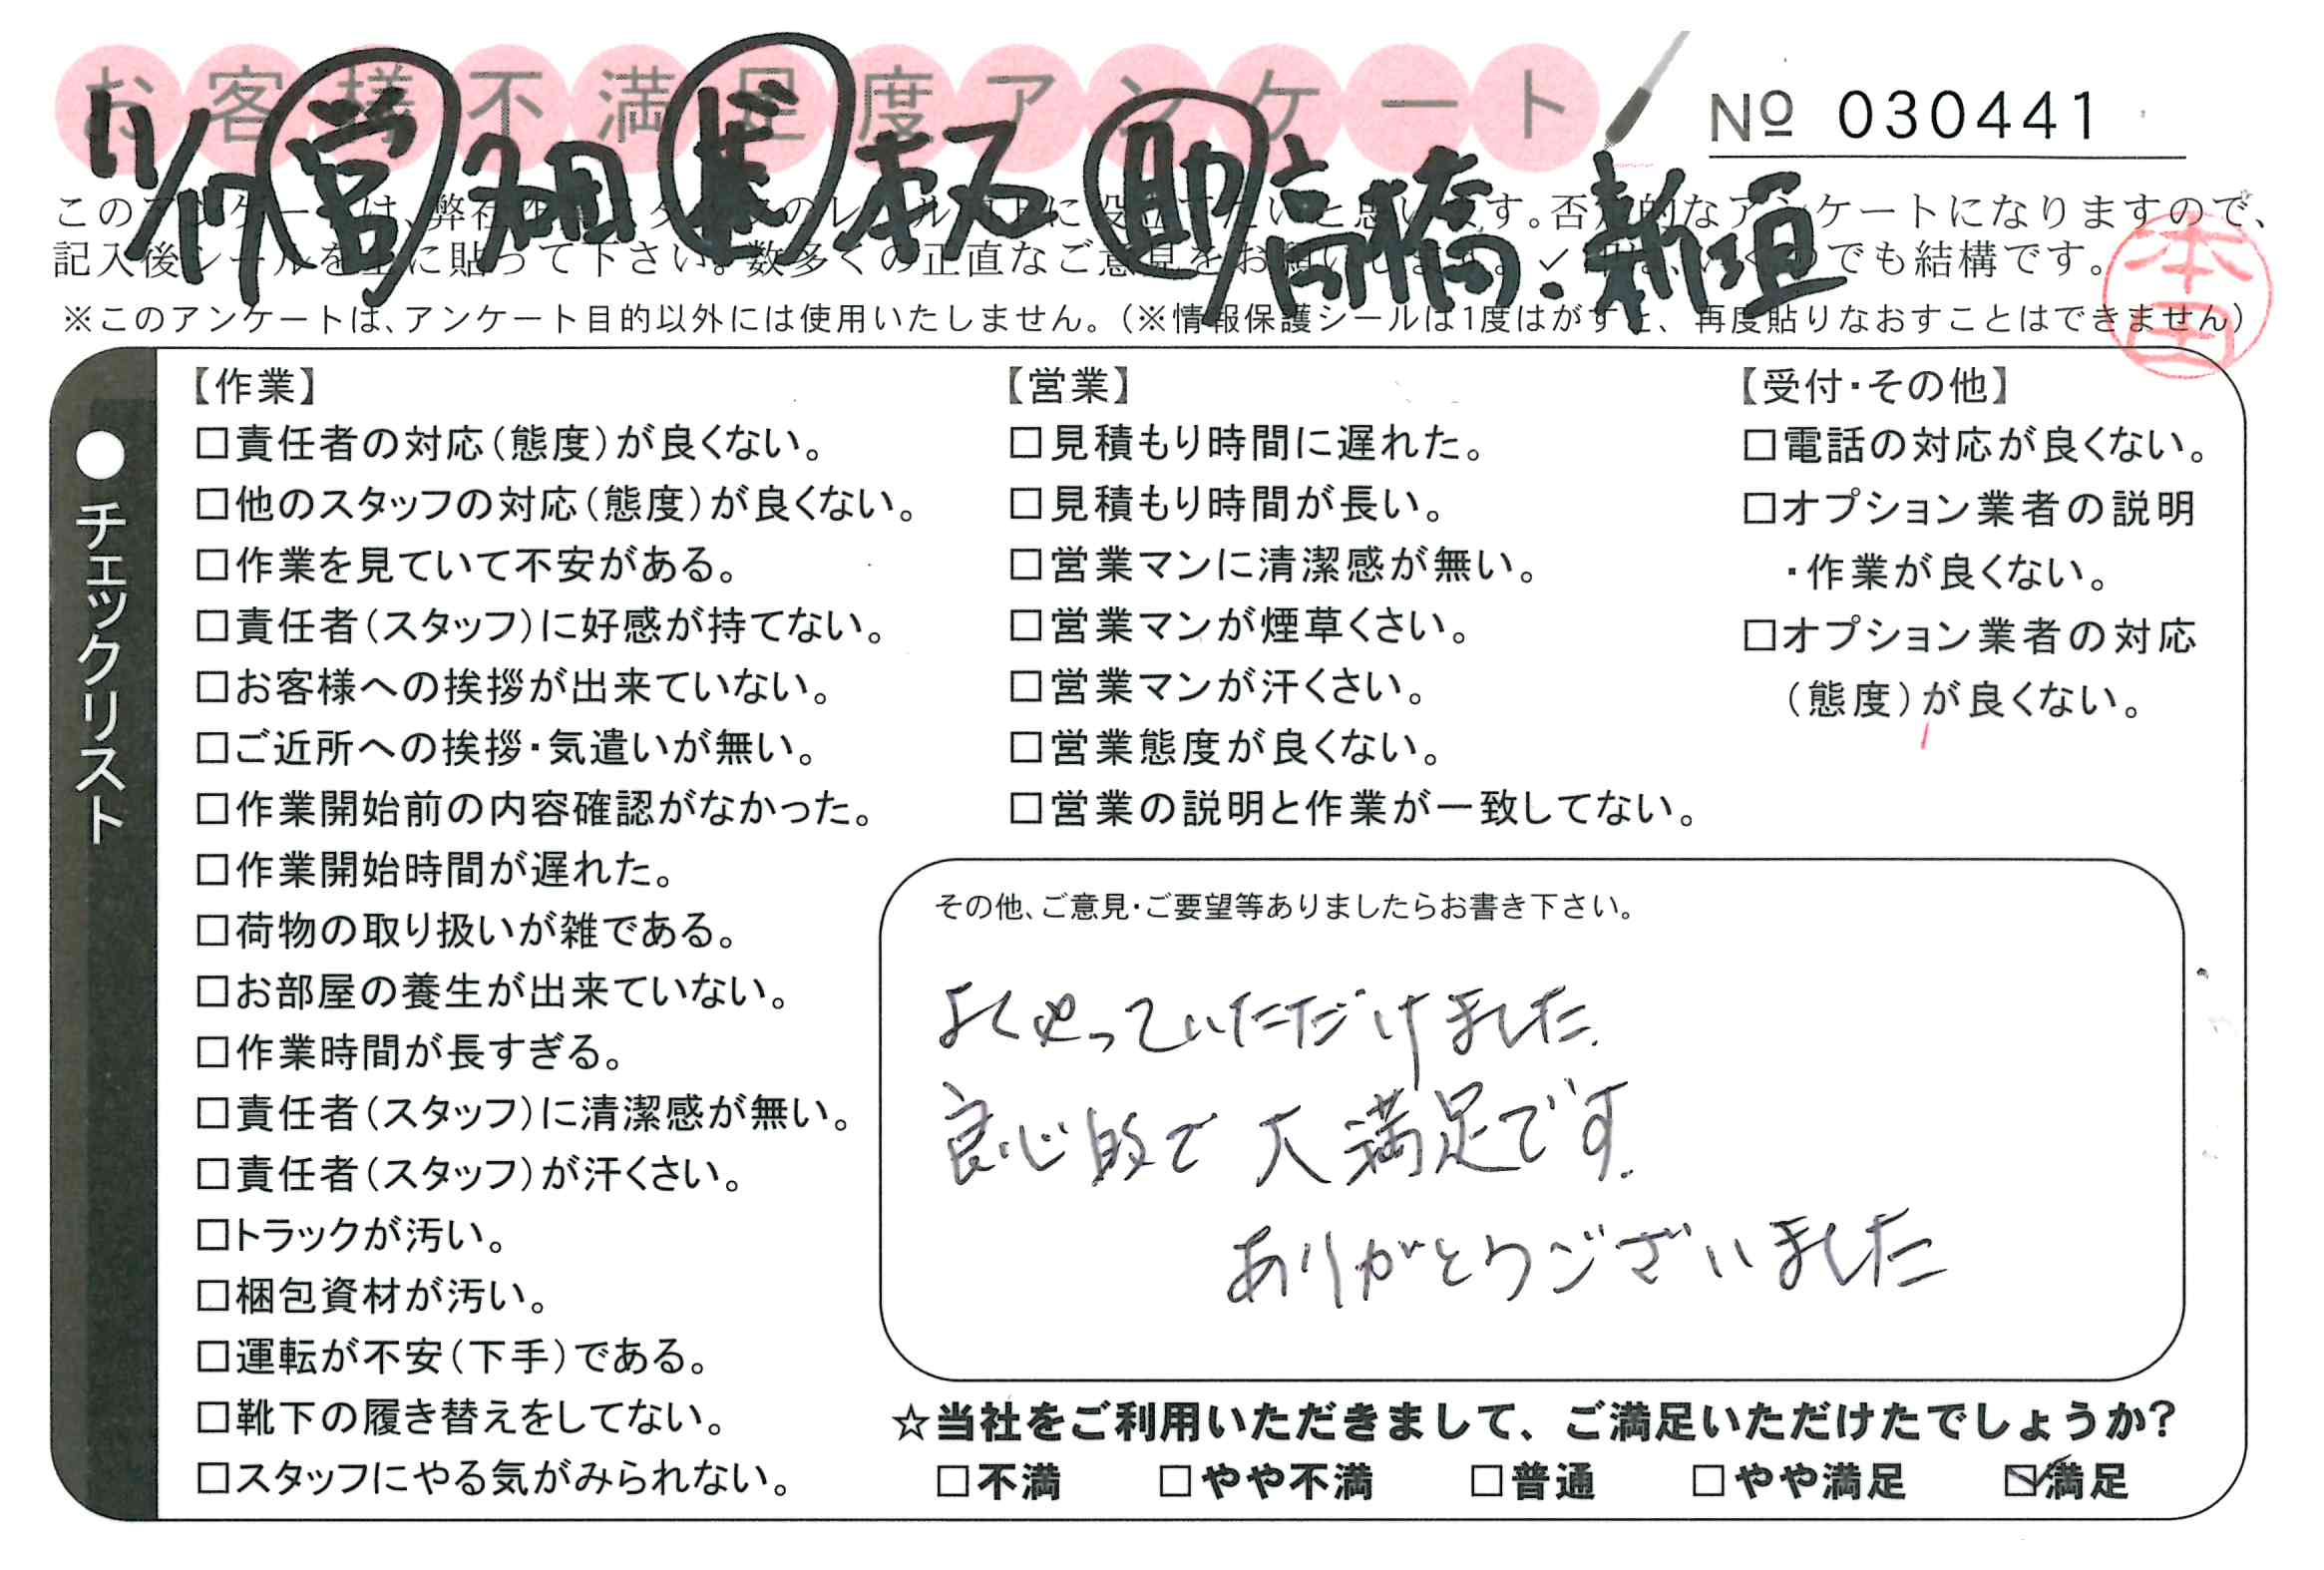 お客様不満足度アンケート
№ 030441
11/17 営 畑 本石 助 高橋・新垣
記入後シールを上に貼って下さい。数多くの正直なご意見をお願いします。
※このアンケートは、アンケート目的以外には使用いたしません。(※情報保護シールは1度はがすと、再度貼りなおすことはできません)
本田
●チェックリスト
【作業】
□責任者の対応(態度)が良くない。
□他のスタッフの対応(態度)が良くない。
□作業を見ていて不安がある。
□責任者(スタッフ)に好感が持てない。
□お客様への挨拶が出来ていない。
□ご近所への挨拶・気遣いが無い。
□作業開始前の内容確認がなかった。
□作業開始時間が遅れた。
□荷物の取り扱いが雑である。
□お部屋の養生が出来ていない。
□作業時間が長すぎる。
□責任者(スタッフ)に清潔感が無い。
□責任者(スタッフ)が汗くさい。
□トラックが汚い。
□梱包資材が汚い。
□運転が不安(下手)である。
□靴下の履き替えをしてない。
□スタッフにやる気がみられない。
【営業】
□見積もり時間に遅れた。
□見積もり時間が長い。
□営業マンに清潔感が無い。
□営業マンが煙草くさい。
□営業マンが汗くさい。
□営業態度が良くない。
□営業の説明と作業が一致してない。
【受付・その他】
□電話の対応が良くない。
□オプション業者の説明
・作業が良くない。
□オプション業者の対応
(態度)が良くない。
その他、ご意見・ご要望等ありましたらお書き下さい。
よくやっていただけました.
良心的で大満足です.
ありがとうございました
☆当社をご利用いただきまして、ご満足いただけたでしょうか?
□不満 □やや不満 □普通 □やや満足 ☑満足